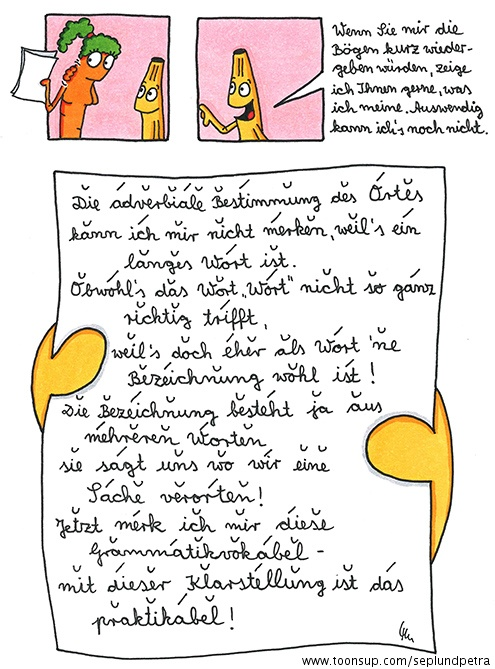 Wenn Sie mir die
Bögen kurz wieder-
geben würden, zeige
ich Ihnen gerne, was
ich meine. Auswendig
kann ich's noch nicht.
Die adverbiale Bestimmung des Ortes
kann ich mir nicht merken, weil's ein
langes Wort ist.
Obwohl's das Wort „Wort" nicht so ganz
richtig trifft,
weil's doch eher als Wort 'ne
Bezeichnung wohl ist!
Die Bezeichnung besteht ja aus
mehreren Worten
sie sagt uns wo wir eine
Sache verorten!
Jetzt merk ich mir diese
Grammatikvokabel -
mit dieser Klarstellung ist das
praktikabel!
www.toonsup.com/seplundpetra